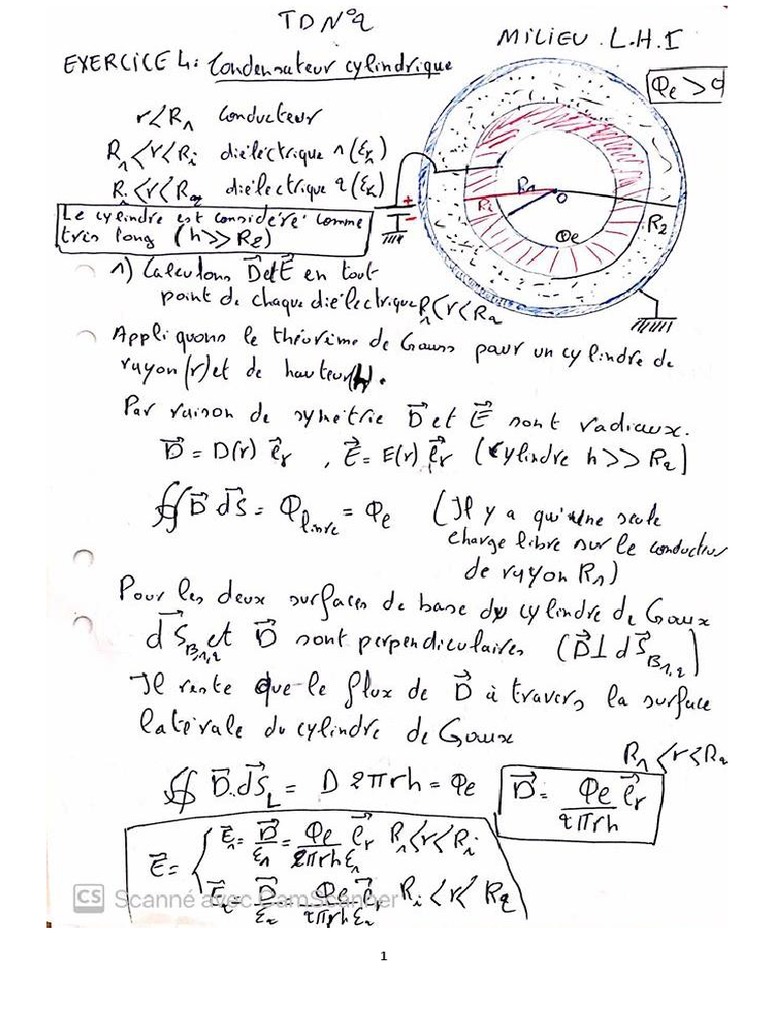 TDN°2
MILIEU . L.H.I
EXERCICE 4: Condensateur cylindrique
Φe > 0
r < R1 conducteur
R1 < r < Ri diélectrique 1 (ε1)
Ri < r < R2 diélectrique 2 (ε2)
Le cylindre est considéré comme
très long (h >> R2)
+
-
R1
Ri
O
R2
Φe
1) Calculons D⃗ et E⃗ en tout
point de chaque diélectrique R1 < r < R2
Appliquons le théorème de Gauss pour un cylindre de
rayon (r) et de hauteur (h).
Par raison de symétrie D⃗ et E⃗ sont radiaux.
D⃗ = D(r) e⃗r , E⃗ = E(r) e⃗r (cylindre h >> R2)
∯ D⃗ dS⃗ = Φlibre = Φe (Il y a qu'une seule
charge libre sur le conducteur
de rayon R1)
Pour les deux surfaces de base du cylindre de Gauss
dS⃗B1,2 et D⃗ sont perpendiculaires (D⃗ ⊥ dS⃗B1,2)
Il reste que le flux de D⃗ à travers la surface
latérale du cylindre de Gauss
R1 < r < R2
∯ D⃗.dS⃗L = D 2πrh = Φe D⃗ = Φe/2πrh e⃗r
E⃗ = { E⃗1 = D⃗/ε1 = Φe/2πrhε1 e⃗r R1 < r < Ri
E⃗2 D⃗/ε2 = Φe/2πrhε2 e⃗r Ri < r < R2
CS Scanné avec CamScanner
1